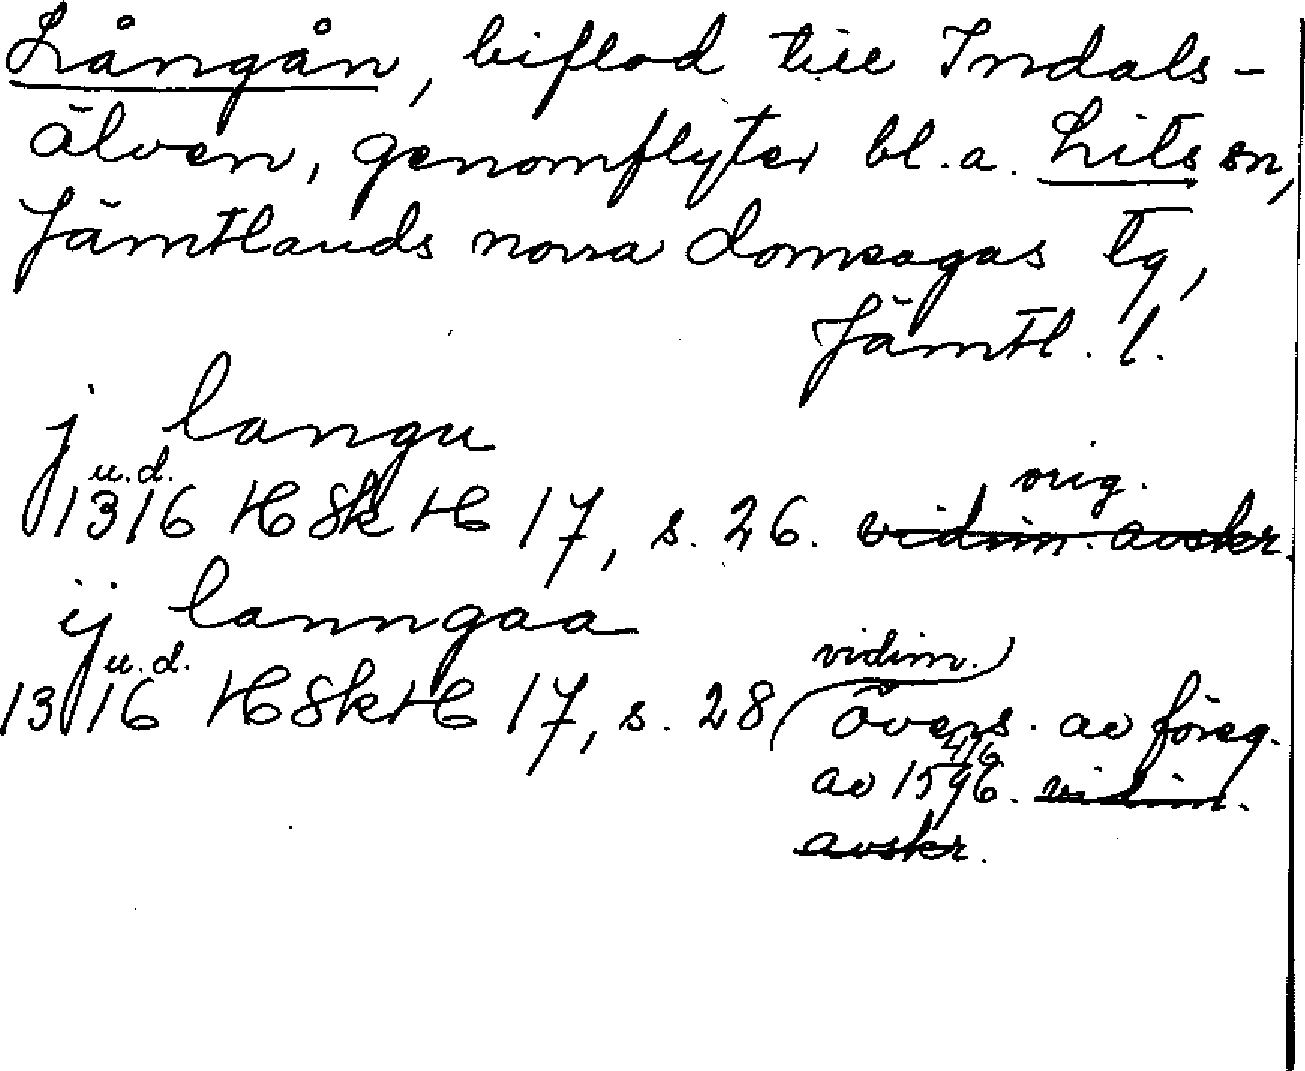 Långån, biflod till Indals-
älven, genomflyter bl.a. Lits sn,
Jämtlands norra domsagas tg,
Jämtl. l.
j langu
u.d.
orig.
1316 HSkH 17, s. 26. vidim. avskr.
ij lanngaa
u.d.
vidim.)
1316 HSkH 17, s. 28 (övers. av föreg.
4/6
av 1596. vidim.
avskr.